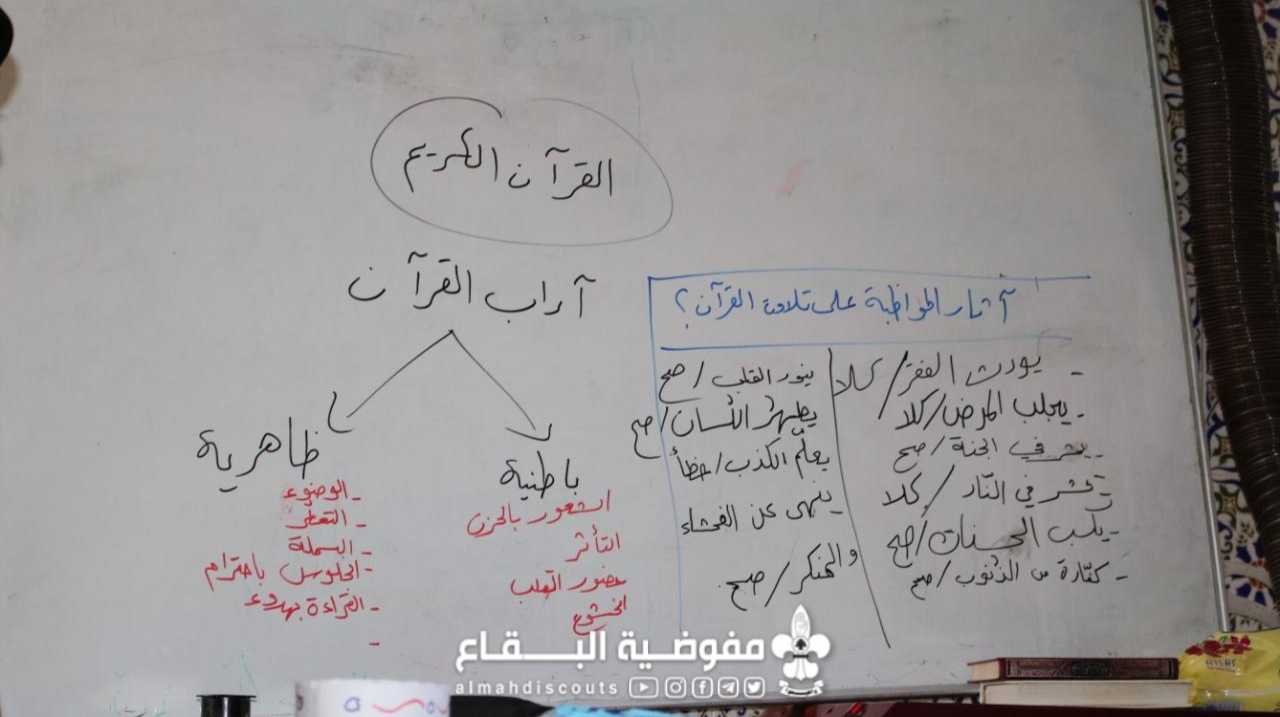 القرآن الكريم
آداب القرآن
ظاهرية
- الوضوء
- التعطر
- البسملة
- الجلوس باحترام
- القراءة بهدوء
-
باطنية
الشعور بالحزن
التأثر
حضور القلب
الخشوع
آثار المواظبة على تلاوة القرآن؟
- يورث الفقر / كلا
- يجلب المرض / كلا
- يشر في الجنة / صح
- تحشر في النّار / كلا
- يكسب الحسنات / صح
- كفّارة من الذنوب / صح
ينور القلب / صح
يطهّر اللّسان / صح
يعلّم الكذب / خطأ
ينهى عن الفحشاء
والمنكر / صح
مفوضية البقاع
almahdiscouts